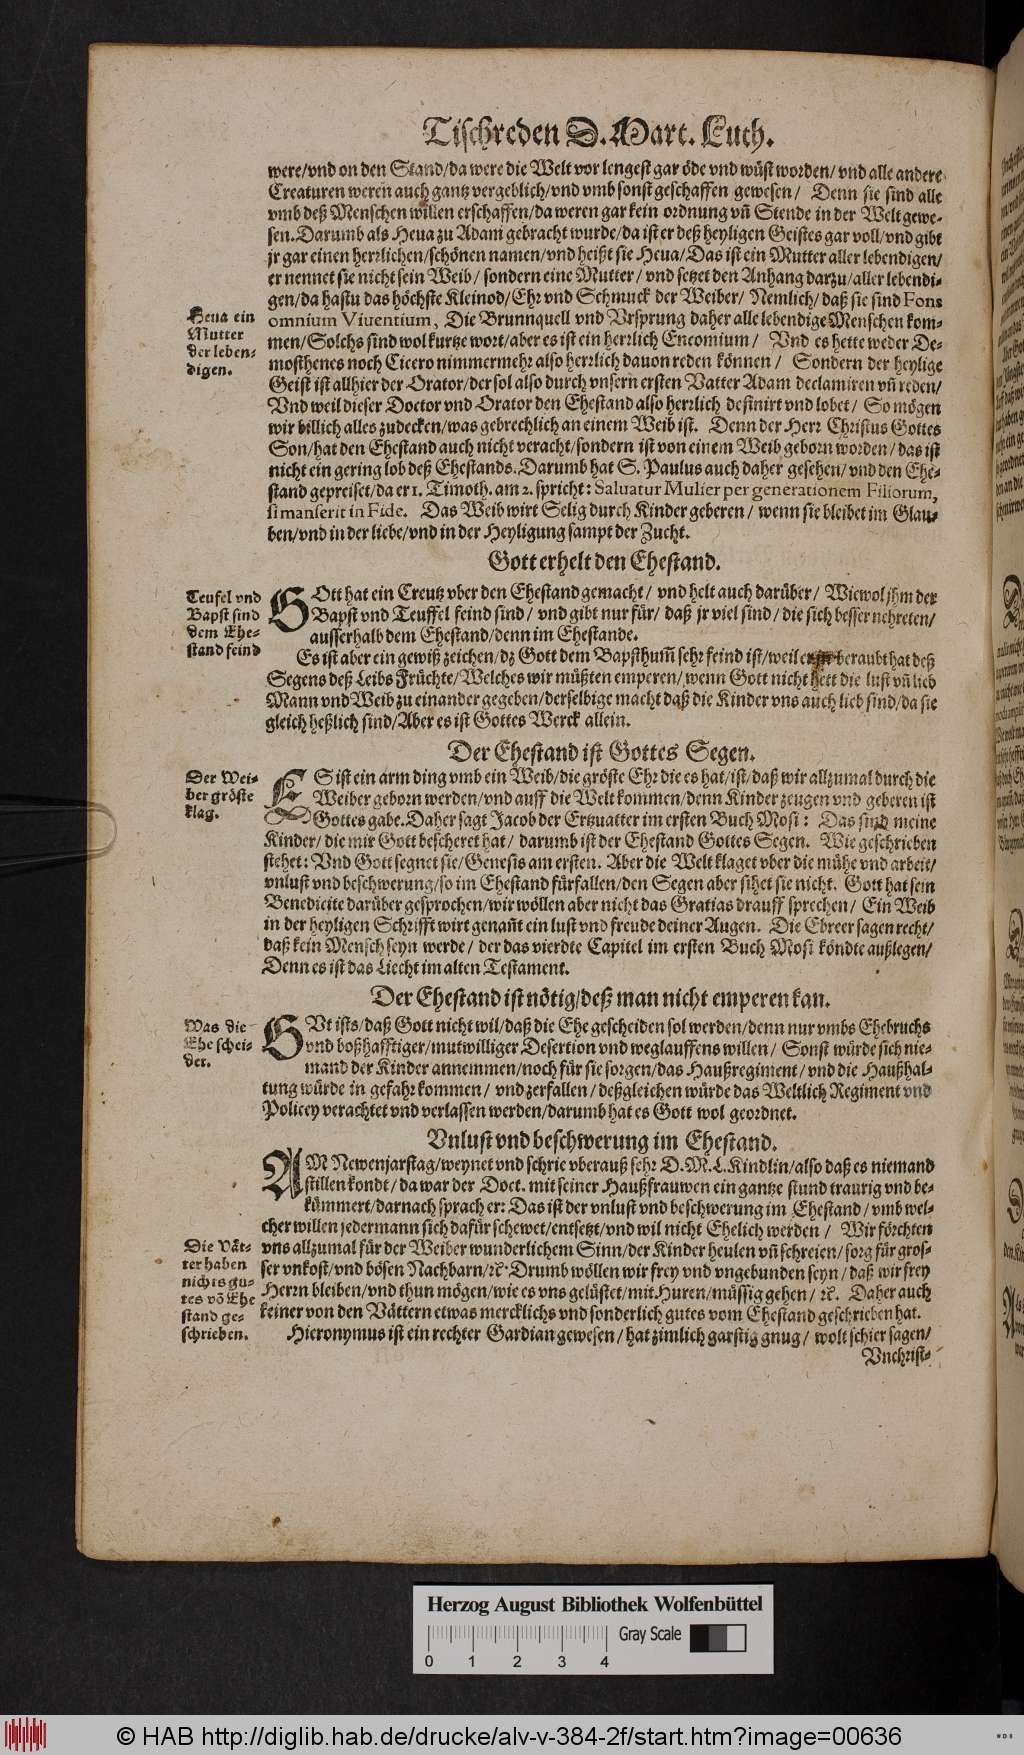 Tischreden D. Mart. Luth.
were/vnd on den Stand/da were die Welt vor lengest gar öde vnd wüst worden/ vnd alle andere
Creaturen weren auch gantz vergeblich/vnd vmb sonst geschaffen gewesen/ Denn sie sind alle
vmb deß Menschen willen erschaffen/da weren gar kein ordnung vñ Stende in der Welt gewe-
sen. Darumb als Heua zu Adam gebracht wurde/da ist er deß heyligen Geistes gar voll/vnd gibt
jr gar einen herrlichen/schönen namen/vnd heißt sie Heua/Das ist ein Mutter aller lebendigen/
er nennet sie nicht sein Weib/ sondern eine Mutter/ vnd setzet den Anhang darzu/aller lebendi-
gen/da hastu das höchste Kleinod/Ehr vnd Schmuck der Weiber/ Nemlich/ daß sie sind Fons
Heua ein
Mutter
der leben-
digen.
omnium Viuentium, Die Brunnquell vnd Vrsprung daher alle lebendige Menschen kom-
men/Solchs sind wol kurtze wort/aber es ist ein herrlich Encomium/ Vnd es hette weder De-
mosthenes noch Cicero nimmermehr also herrlich dauon reden können/ Sondern der heylige
Geist ist allhier der Orator/der sol also durch vnsern ersten Vatter Adam declamiren vñ reden/
Vnd weil dieser Doctor vnd Orator den Ehestand also herrlich definirt vnd lobet/ So mögen
wir billich alles zudecken/was gebrechlich an einem Weib ist. Denn der Herr Christus Gottes
Son/hat den Ehestand auch nicht veracht/sondern ist von einem Weib geborn worden/ das ist
nicht ein gering lob deß Ehestands. Darumb hat S. Paulus auch daher gesehen/ vnd den Ehe-
stand gepreiset/da er 1. Timoth. am 2. spricht: Saluatur Mulier per generationem Filiorum,
si manserit in Fide. Das Weib wirt Selig durch Kinder geberen/ wenn sie bleibet im Glau-
ben/vnd in der liebe/vnd in der Heyligung sampt der Zucht.
Gott erhelt den Ehestand.
Teufel vnd
Bapst sind
dem Ehe-
stand feind
GOtt hat ein Creutz vber den Ehestand gemacht/ vnd helt auch darüber/ Wiewol jhm der
Bapst vnd Teuffel feind sind/ vnd gibt nur für/ daß jr viel sind/ die sich besser nehreten/
ausserhalb dem Ehestand/denn im Ehestande.
Es ist aber ein gewiß zeichen/dz Gott dem Bapsthum̃ sehr feind ist/weil er beraubt hat deß
Segens deß Leibs Früchte/Welches wir müßten emperen/wenn Gott nicht hett die lust vñ lieb
Mann vnd Weib zu einander gegeben/derselbige macht daß die Kinder vns auch lieb sind/da sie
gleich heßlich sind/Aber es ist Gottes Werck allein.
Der Ehestand ist Gottes Segen.
Der Wei-
ber gröste
klag.
ES ist ein arm ding vmb ein Weib/die gröste Ehr die es hat/ist/daß wir allzumal durch die
Weiber geborn werden/vnd auff die Welt kommen/denn Kinder zeugen vnd geberen ist
Gottes gabe. Daher sagt Jacob der Ertzuatter im ersten Buch Mosi: Das sind meine
Kinder/ die mir Gott bescheret hat/ darumb ist der Ehestand Gottes Segen. Wie geschrieben
stehet: Vnd Gott segnet sie/Genesis am ersten. Aber die Welt klaget vber die mühe vnd arbeit/
vnlust vnd beschwerung/so im Ehestand fürfallen/den Segen aber sihet sie nicht. Gott hat sein
Benedicite darüber gesprochen/wir wöllen aber nicht das Gratias drauff sprechen/ Ein Weib
in der heyligen Schrifft wirt genañt ein lust vnd freude deiner Augen. Die Ebreer sagen recht/
daß kein Mensch seyn werde/ der das vierdte Capitel im ersten Buch Mosi köndte außlegen/
Denn es ist das Liecht im alten Testament.
Der Ehestand ist nötig/deß man nicht emperen kan.
Was die
Ehe schei-
der.
GVt ists/daß Gott nicht wil/daß die Ehe gescheiden sol werden/denn nur vmbs Ehebruchs
vnd boßhafftiger/mutwilliger Desertion vnd weglauffens willen/ Sonst würde sich nie-
mand der Kinder annemmen/noch für sie sorgen/das Haußregiment/ vnd die Haußhal-
tung würde in gefahr kommen/ vnd zerfallen/ deßgleichen würde das Weltlich Regiment vnd
Policey verachtet vnd verlassen werden/darumb hat es Gott wol geordnet.
Vnlust vnd beschwerung im Ehestand.
AM Newenjarstag/weynet vnd schrie vberauß sehr D. M. L. Kindlin/also daß es niemand
stillen kondt/da war der Doct. mit seiner Haußfrauwen ein gantze stund traurig vnd be-
kümmert/darnach sprach er: Das ist der vnlust vnd beschwerung im Ehestand/ vmb wel-
cher willen jedermann sich dafür schewet/entsetzt/vnd wil nicht Ehelich werden/ Wir förchten
Die Vät-
ter haben
nichts gu-
tes võ Ehe
stand ge-
schrieben.
vns allzumal für der Weiber wunderlichem Sinn/der Kinder heulen vñ schreien/ sorg für gros-
ser vnkost/vnd bösen Nachbarn/ꝛc. Drumb wöllen wir frey vnd vngebunden seyn/ daß wir frey
Herrn bleiben/vnd thun mögen/wie es vns gelüstet/mit Huren/müssig gehen/ ꝛc. Daher auch
keiner von den Vättern etwas mercklichs vnd sonderlich gutes vom Ehestand geschrieben hat.
Hieronymus ist ein rechter Gardian gewesen/ hat zimlich garstig gnug/ wolt schier sagen/
Vnchrist-
Herzog August Bibliothek Wolfenbüttel
Gray Scale
0 1 2 3 4
© HAB http://diglib.hab.de/drucke/alv-v-384-2f/start.htm?image=00636